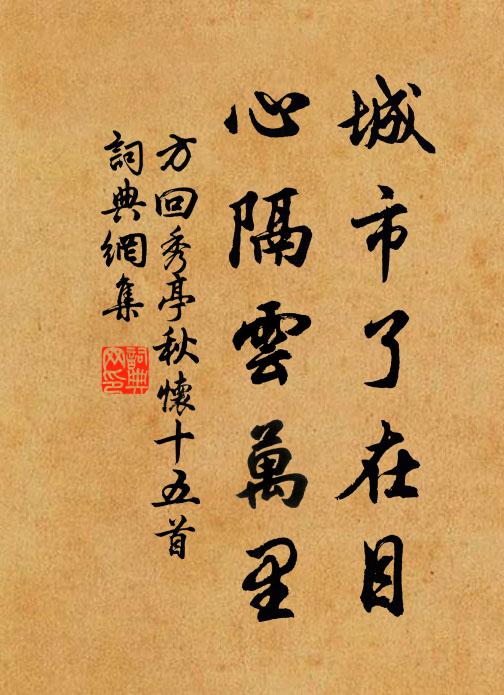 城市了在目
心隔雲萬里
方回秀亭秋懷十五首
詞典網集
詞典網印